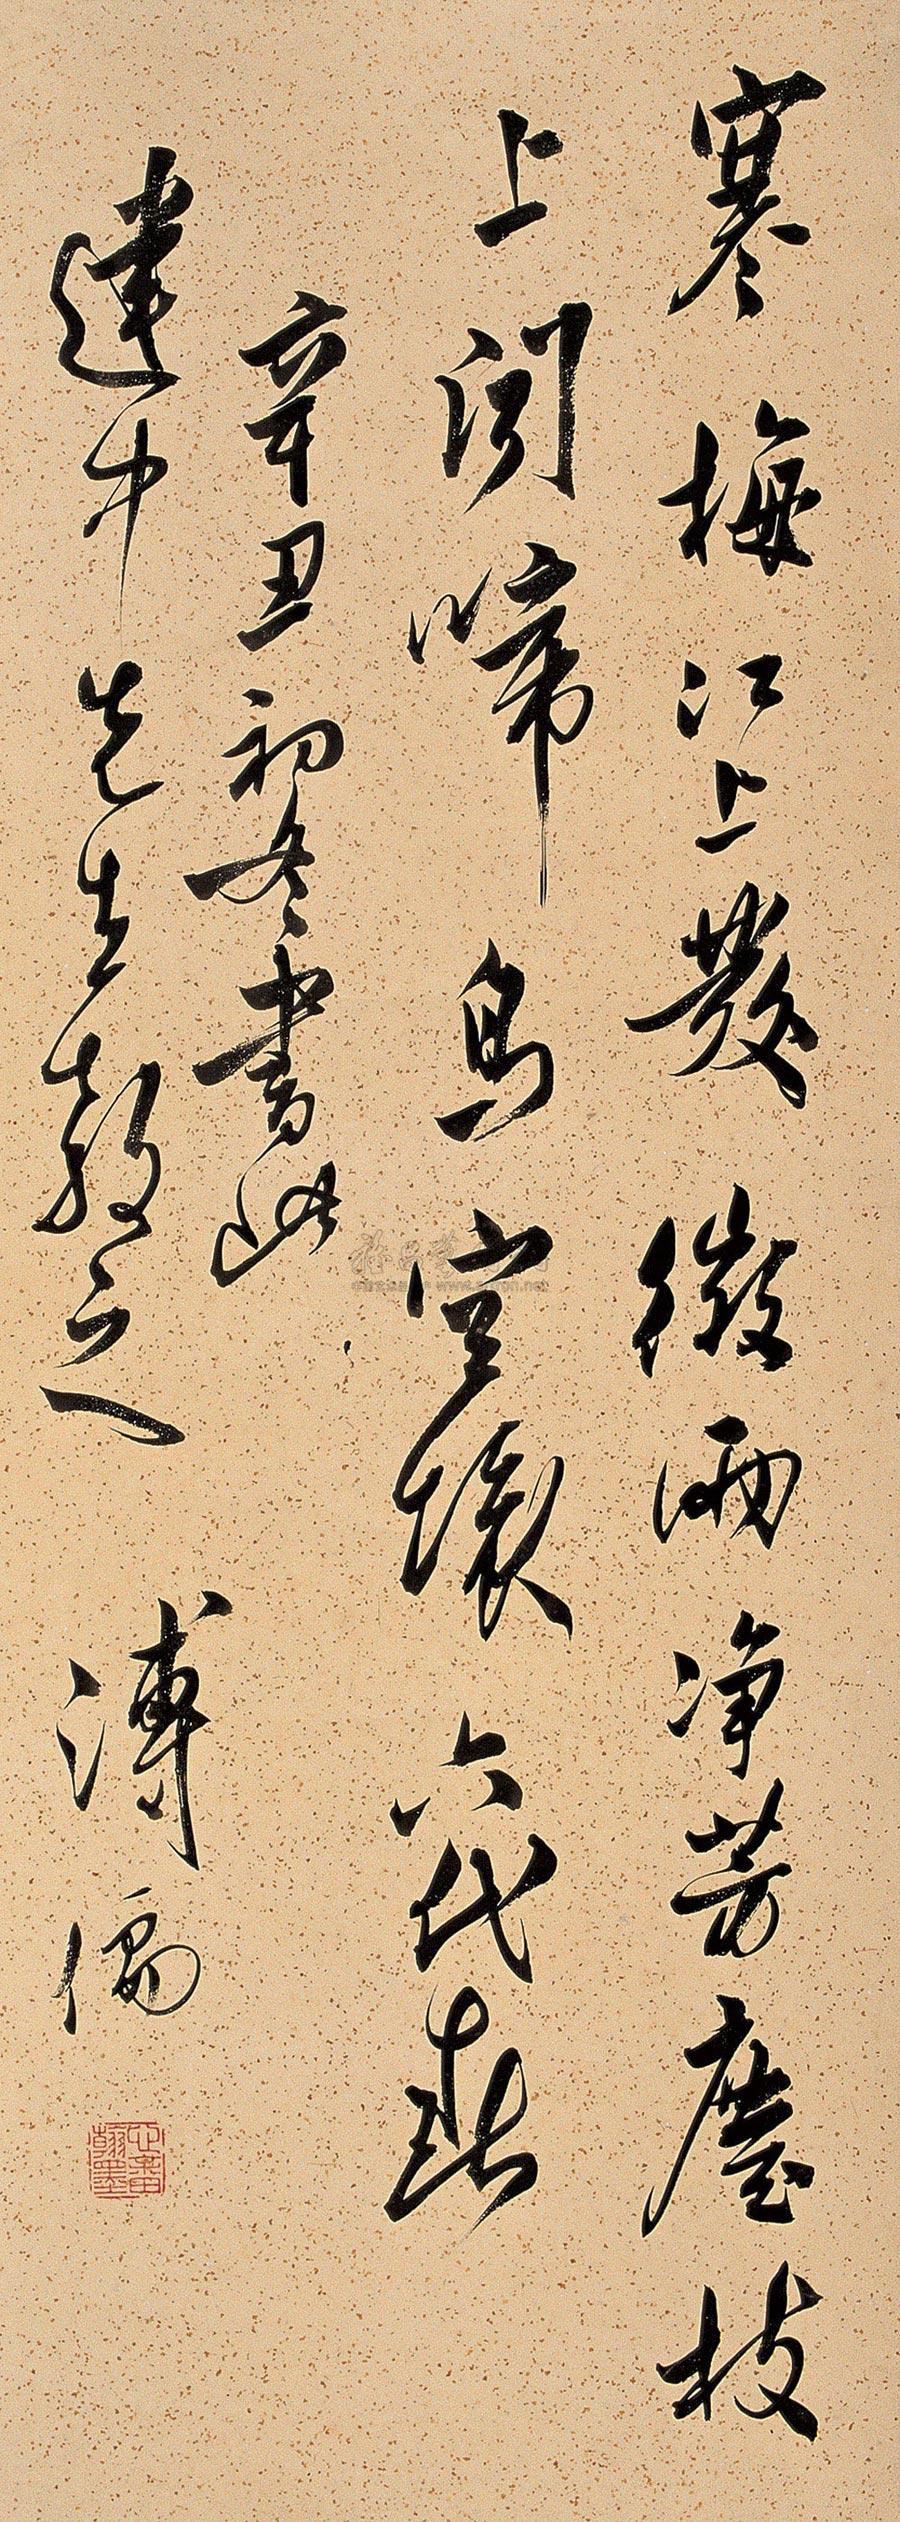 寒梅江上發微雨净芳塵枝
上聞啼鳥空懷六代春
辛丑初冬書此
建中先生教之
溥儒